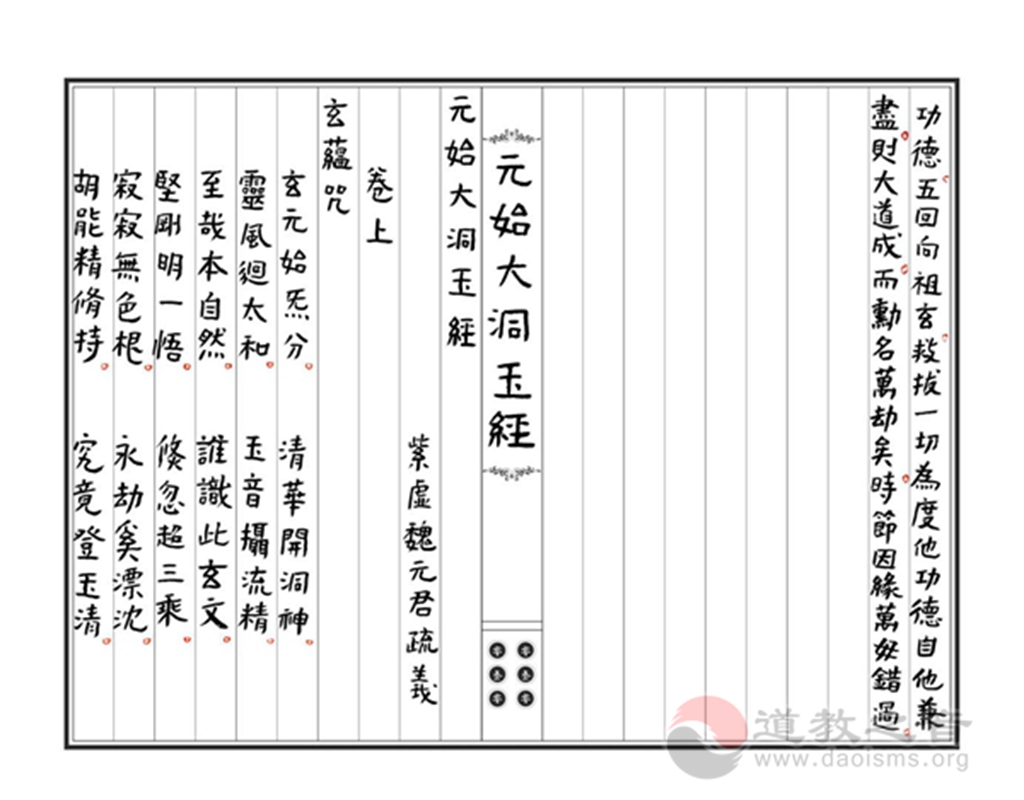 功德五回向祖玄救拔一切為度他功德自他兼
盡則大道成而勳名萬劫矣時節因緣萬毋錯過
元始大洞玉經
元始大洞玉經
紫虛魏元君疏義
卷上
玄蘊咒
玄元始炁分 清華開洞神
靈風迴太和 玉音攝流精
至哉本自然 誰識此玄文
堅剛明一悟 倏忽超三乘
寂寂無色根 永劫奚漂沈
胡能精脩持 究竟登玉清
道教之音
www.daoisms.org